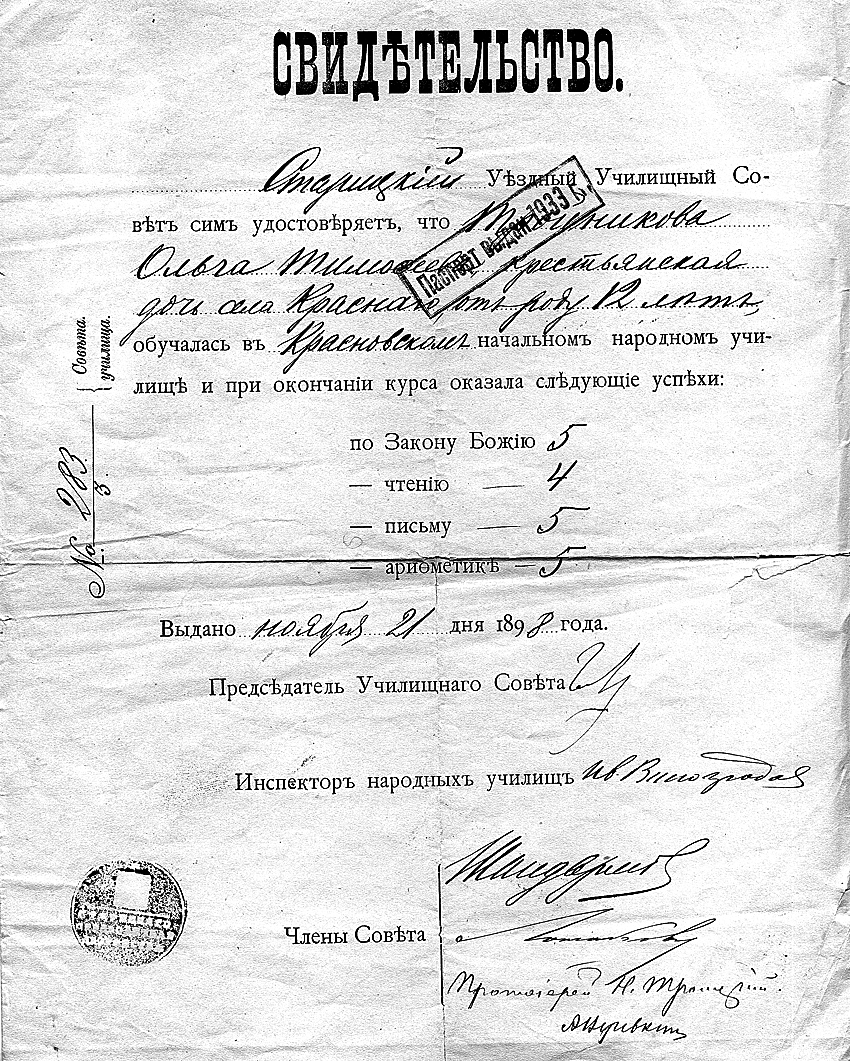 СВИДѢТЕЛЬСТВО.
Старицкій Уѣздный Училищный Со-
вѣтъ симъ удостовѣряетъ, что
Ольга крестьянская
дочь села Краснаго отъ роду 12 лѣтъ,
обучалась въ Красновскомъ начальномъ народномъ учи-
лищѣ и при окончаніи курса оказала слѣдующіе успѣхи:
по Закону Божію 5
— чтенію — 4
— письму — 5
— ариѳметикѣ — 5
Выдано ноября 21 дня 1898 года.
Предсѣдатель Училищнаго Совѣта
Инспекторъ народныхъ училищъ Ив. Виноградов
Члены Совѣта
Протоіерей Н. Троицкій.
Паспорт выдан 1933 г.
№ 283
3
Совѣта.
училища.